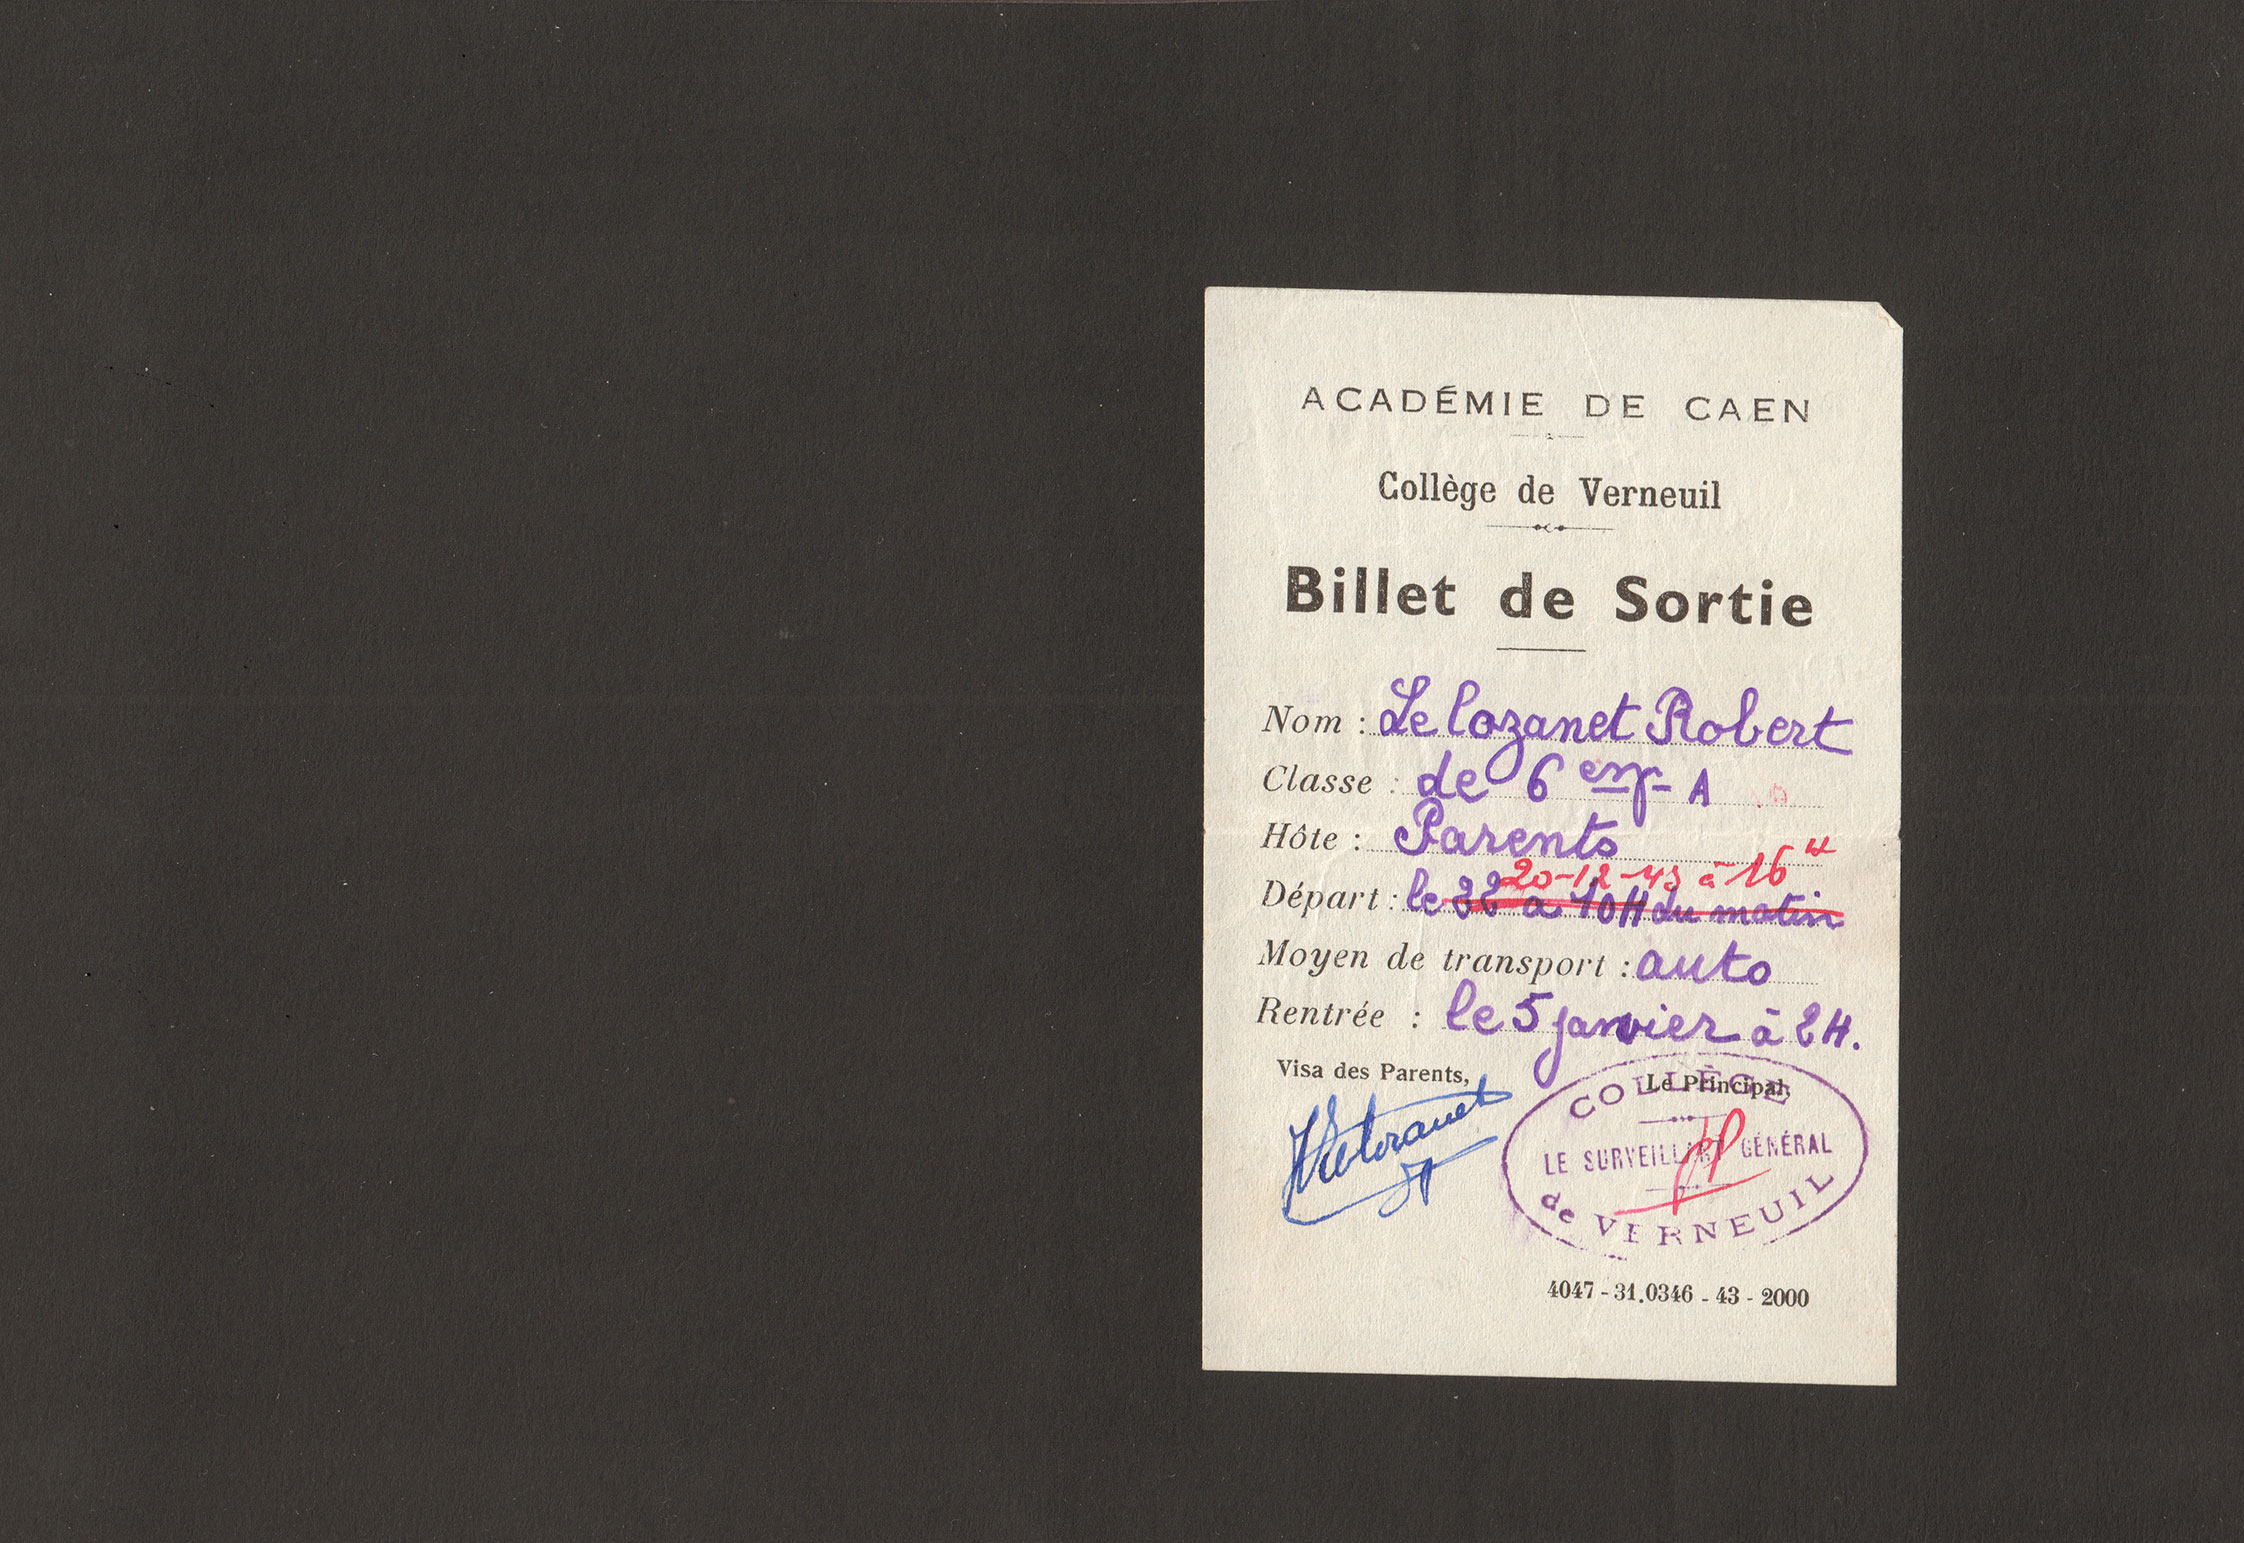 ACADÉMIE DE CAEN
Collège de Verneuil
Billet de Sortie
Nom : Le Cozanet Robert
Classe : de 6 em A
Hôte : Parents
20-12-43 à 16 H
Départ : le 22 a 10H du matin
Moyen de transport : auto
Rentrée : le 5 janvier à 2H.
Visa des Parents,
Le Principal,
COLLÈGE
LE SURVEILLANT GÉNÉRAL
de VERNEUIL
4047 - 31.0346 - 43 - 2000